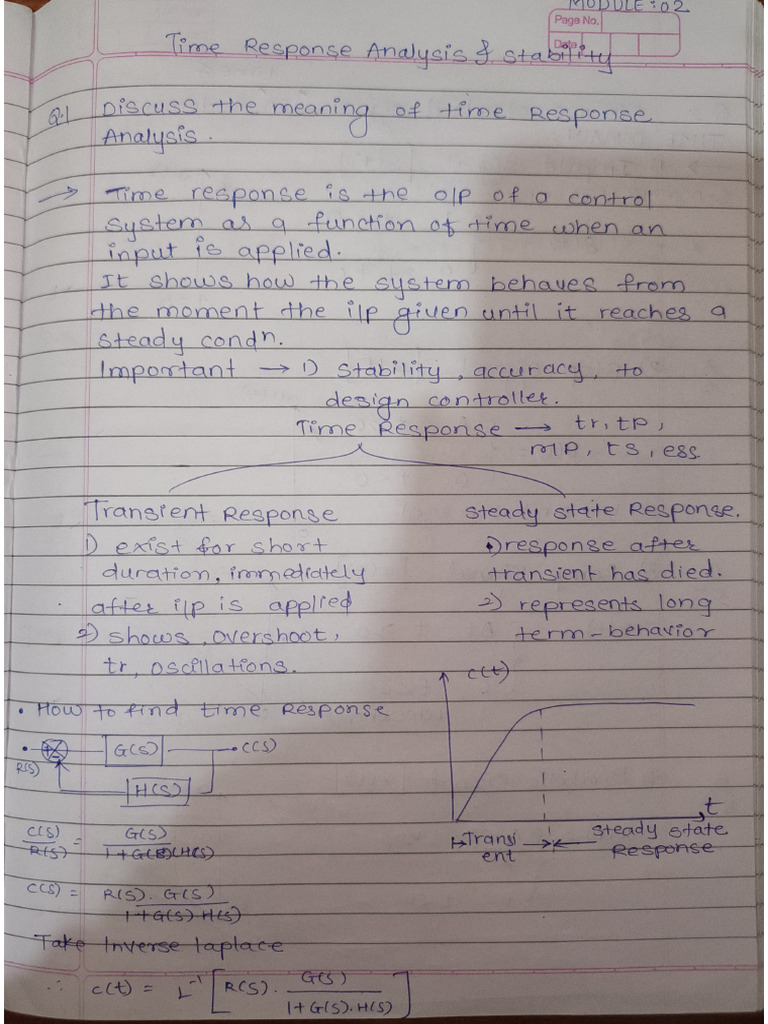 MODULE:02
Page No.
Date
Time Response Analysis & Stability
Q.1 Discuss the meaning of time Response
Analysis.
→ Time response is the o/p of a control
system as a function of time when an
input is applied.
It shows how the system behaves from
the moment the i/p given until it reaches a
steady condn.
Important → 1) Stability, accuracy, to
design controller.
Time Response → tr, tp,
MP, ts, ess
Transient Response
1) exist for short
duration, immediately
after i/p is applied
2) shows, overshoot,
tr, oscillations.
Steady state Response.
1) response after
transient has died.
2) represents long
term-behavior
• How to find time Response
R(s) G(s) C(s)
H(s)
C(s)/R(s) = G(s)/1+G(s)H(s)
C(s) = R(s). G(s)/1+G(s).H(s)
Take Inverse laplace
∴ c(t) = L⁻¹[R(s). G(s)/1+G(s).H(s)]
c(t)
t
Transi
ent
Steady state
Response